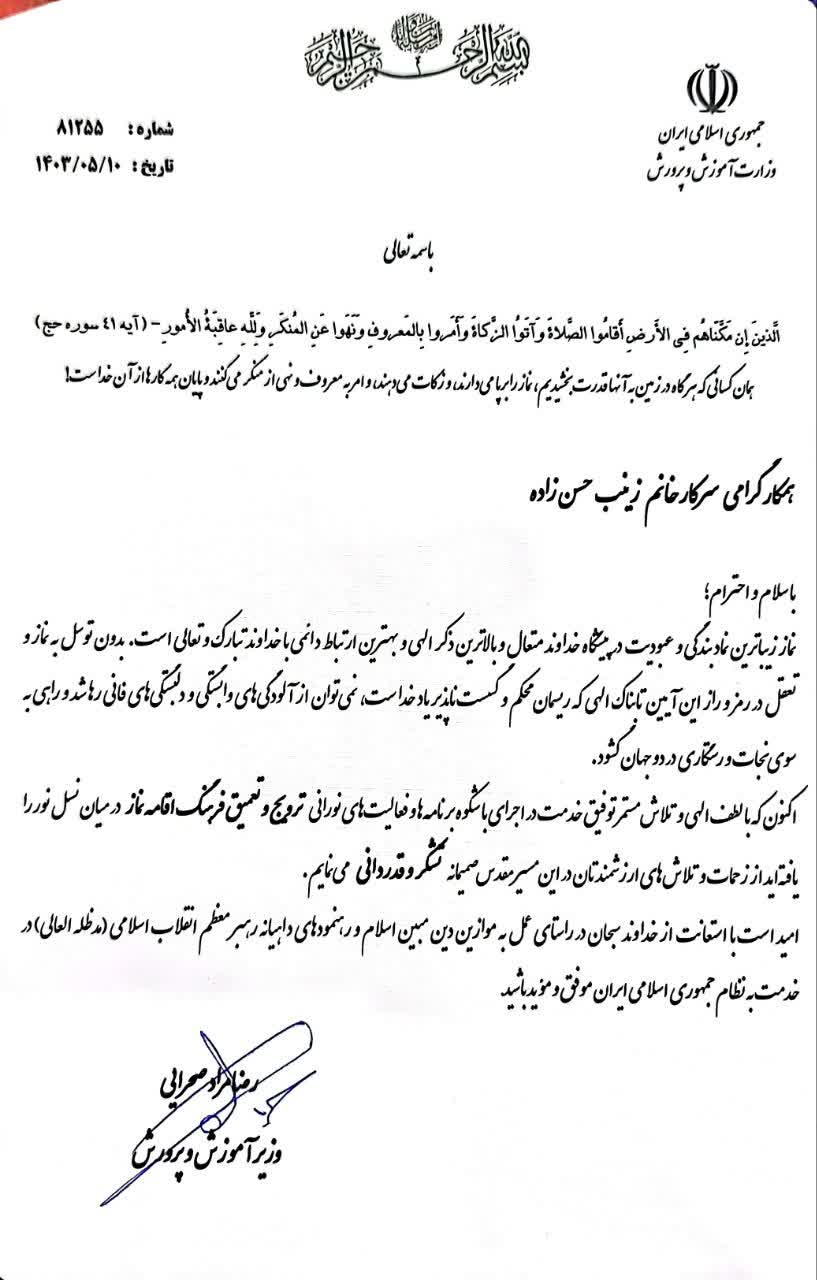 بسم الله الرحمن الرحیم
جمهوری اسلامی ایران
وزارت آموزش و پرورش
شماره: ۸۱۲۵۵
تاریخ: ۱۴۰۳/۰۵/۱۰
باسمه تعالی
الَّذينَ إِن مَكَّنَّاهُم فِي الأَرضِ أَقامُوا الصَّلاةَ وَآتَوُا الزَّكاةَ وَأَمَروا بِالمَعروفِ وَنَهَوا عَنِ المُنكَرِ وَلِلَّهِ عاقِبَةُ الأُمورِ - (آیه ٤١ سوره حج)
همان کسانی که هرگاه در زمین به آنها قدرت بخشیدیم، نماز را برپا می دارند، و زکات می دهند، و امر به معروف و نهی از منکر می کنند و پایان همه کارها از آن خداست!
همکار گرامی سرکار خانم زینب حسن زاده
با سلام و احترام؛
نماز زیباترین نماد بندگی و عبودیت در پیشگاه خداوند متعال و بالاترین ذکر الهی و بهترین ارتباط دائمی با خداوند تبارک و تعالی است. بدون توسل به نماز و
تعقل در رمز و راز این آیین تابناک الهی که ریسمان محکم و گسست ناپذیر یاد خداست، نمی توان از آلودگی های وابستگی و دلبستگی های فانی رها شد و راهی به
سوی نجات و رستگاری در دو جهان گشود.
اکنون که با لطف الهی و تلاش مستمر توفیق خدمت در اجرای باشکوه برنامه ها و فعالیت های نورانی ترویج و تعمیق فرهنگ اقامه نماز در میان نسل نور را
یافته اید از زحمات و تلاش های ارزشمندتان در این مسیر مقدس صمیمانه تشکر و قدردانی می نمایم.
امید است با استعانت از خداوند سبحان در راستای عمل به موازین دین مبین اسلام و رهنمودهای داهیانه رهبر معظم انقلاب اسلامی (مدظله العالی) در
خدمت به نظام جمهوری اسلامی ایران موفق و مؤید باشید.
رضامراد صحرایی
وزیر آموزش و پرورش